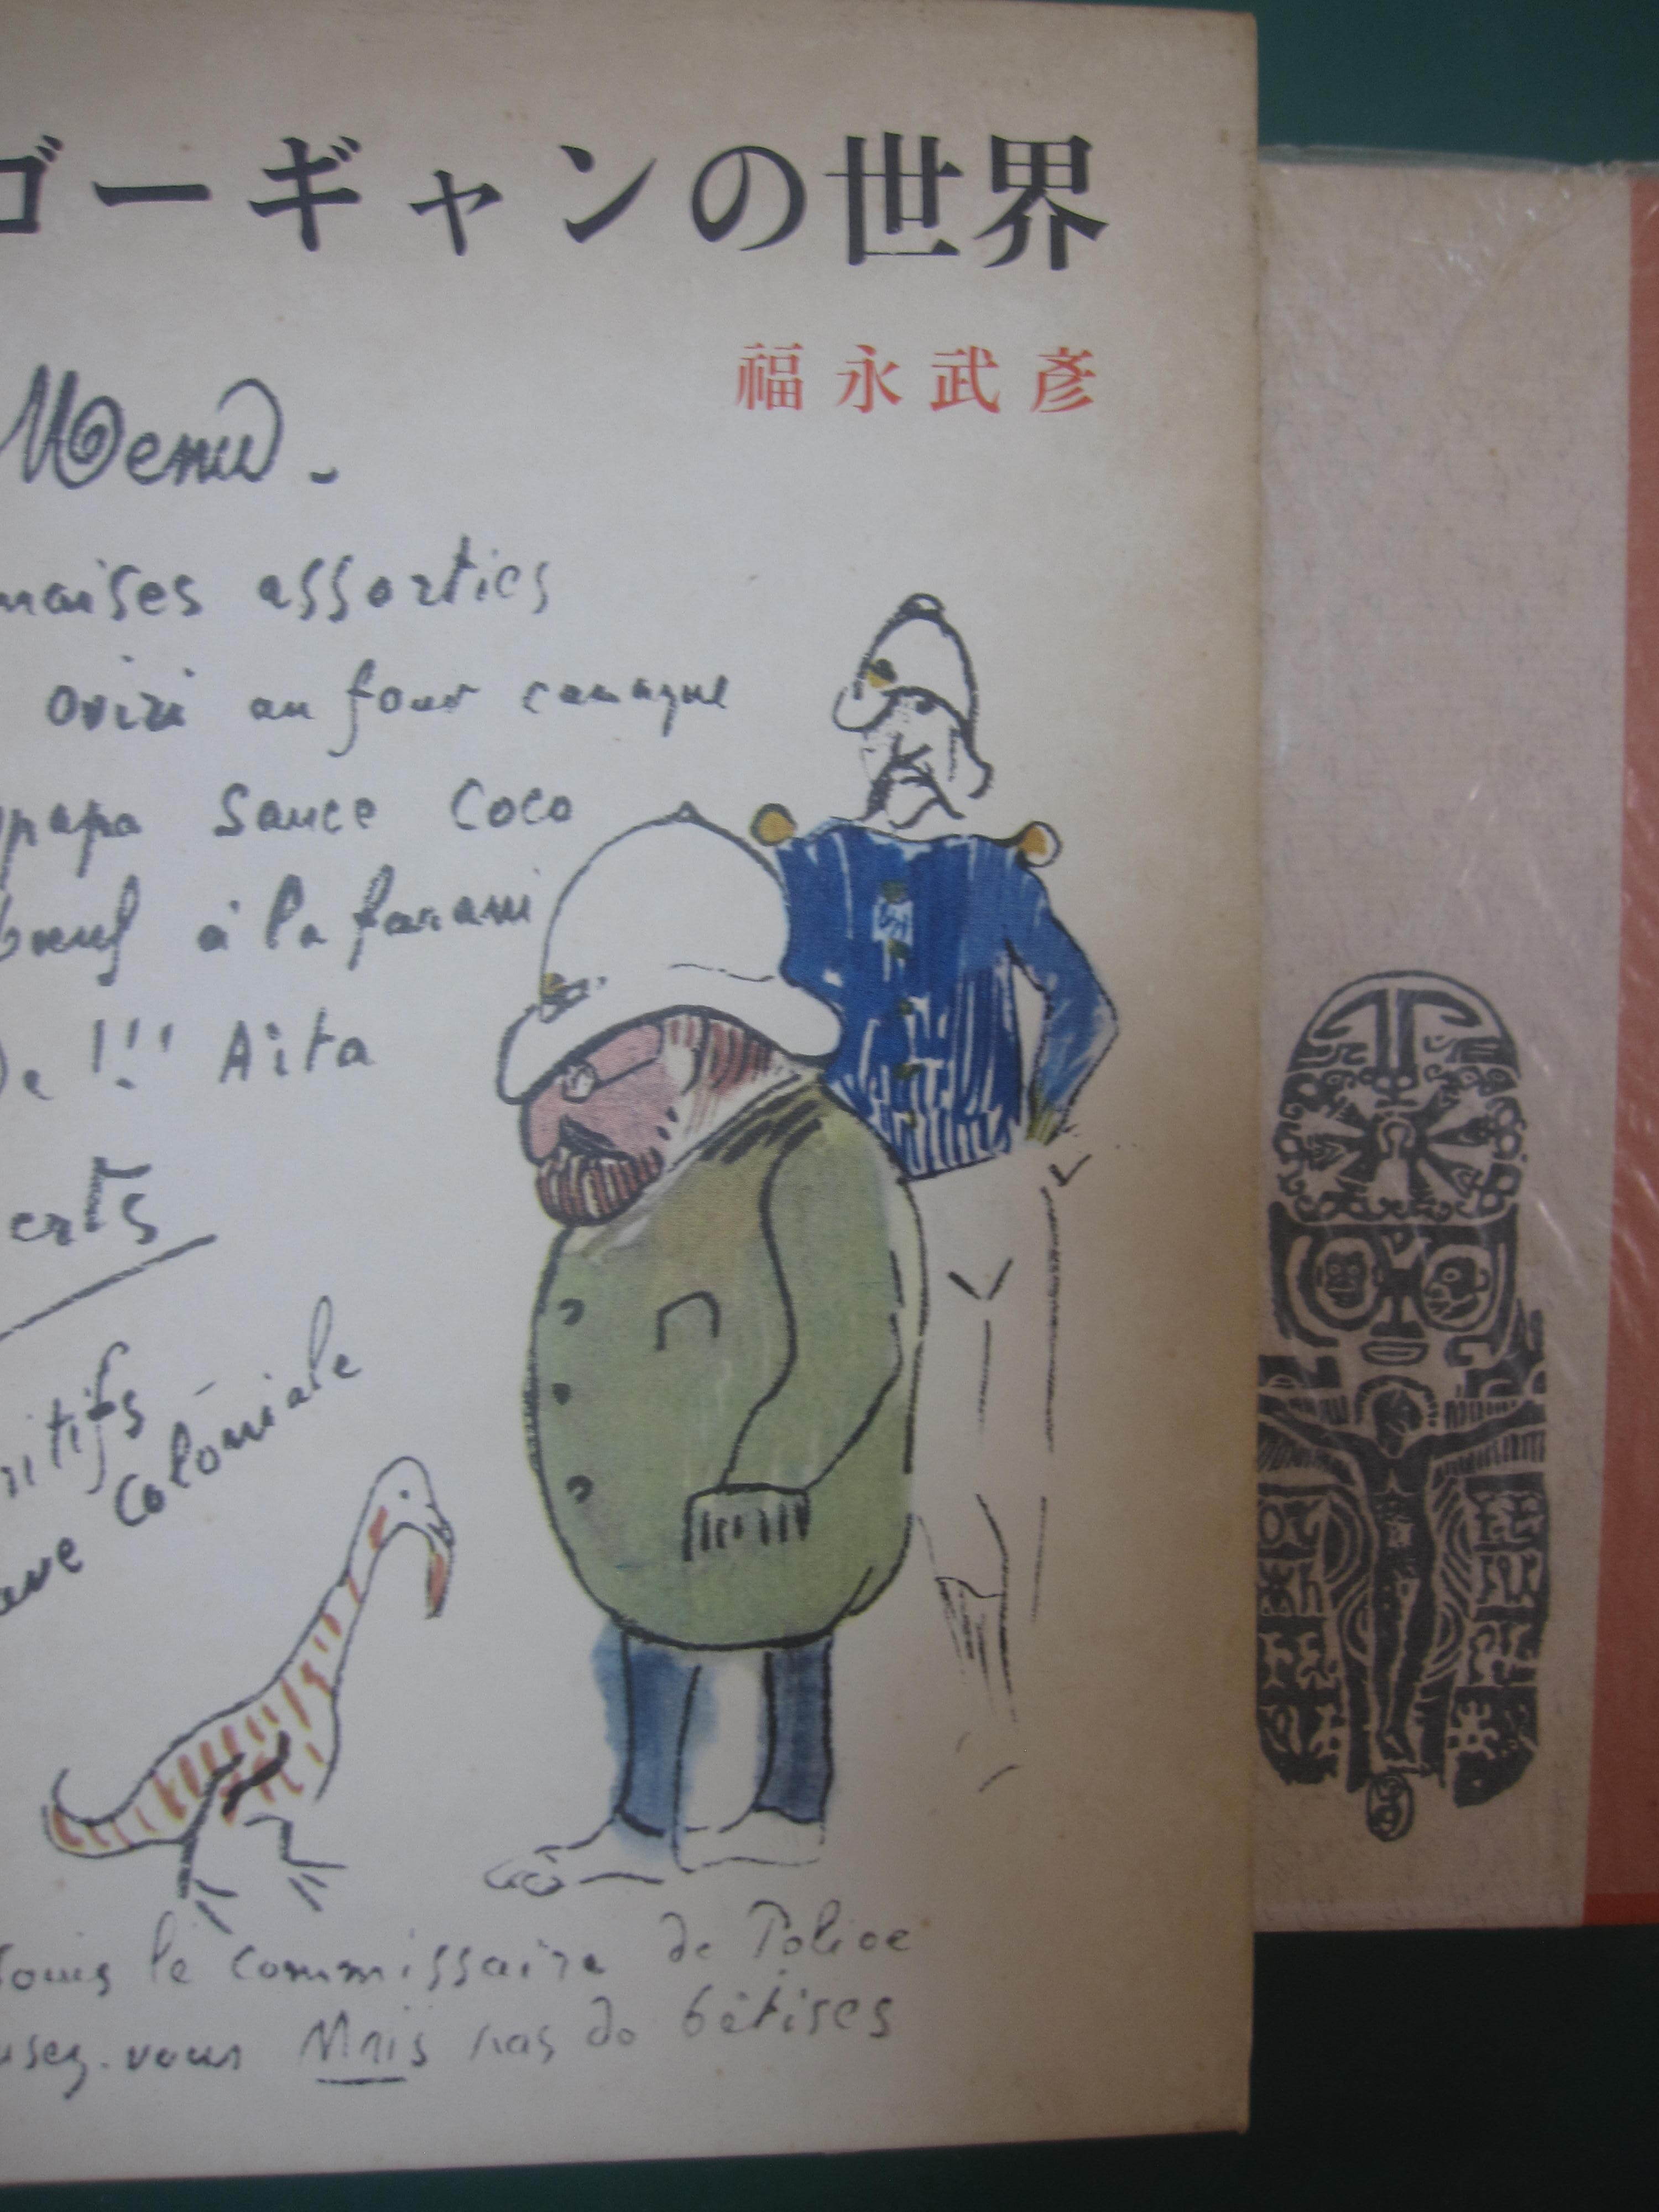 ゴーギャンの世界
福永武彦
Menu.
maises assorties
oviri au four canaque
papa Sauce Coco
bœuf à la farani
!!! Aita
erts
ritifs
Coloniale
le commissaire de Police
usez-vous Mais pas de bêtises